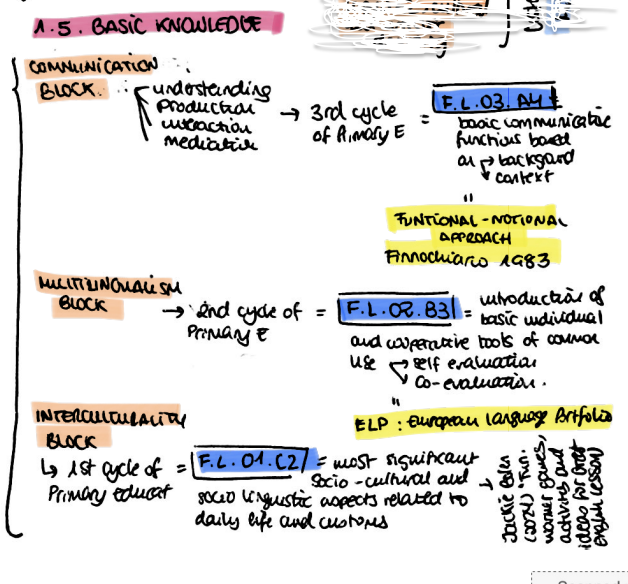 1.5. BASIC KNOWLEDGE
COMMUNICATION
BLOCK.
understanding
production
interaction
mediation
→ 3rd cycle
of Primary E
=
F.L.03.A4 =
basic communicative
functions based
on → backgroud
↘ context
"
FUNTIONAL-NOTIONAL
APPROACH
Finnochiario 1983
MULTILINGUALISM
BLOCK
→ 2nd cycle of
Primary E
=
F.L.02.B3
= introduction of
basic individual
and cooperative tools of common
use → self evaluation
↘ co-evaluation.
"
ELP: European Language Portfolio
INTERCULTURALITY
BLOCK
↳ 1st cycle of
Primary educat
=
F.L.01.C2
= most significant
socio-cultural and
socio linguistic aspects related to
daily life and customs
↓
Jackie
(2024) "Fun.
warmer games,
activities and
ideas for
english lesson)